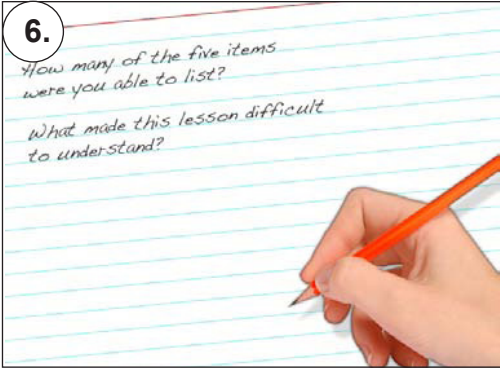 6.
How many of the five items
were you able to list?
What made this lesson difficult
to understand?